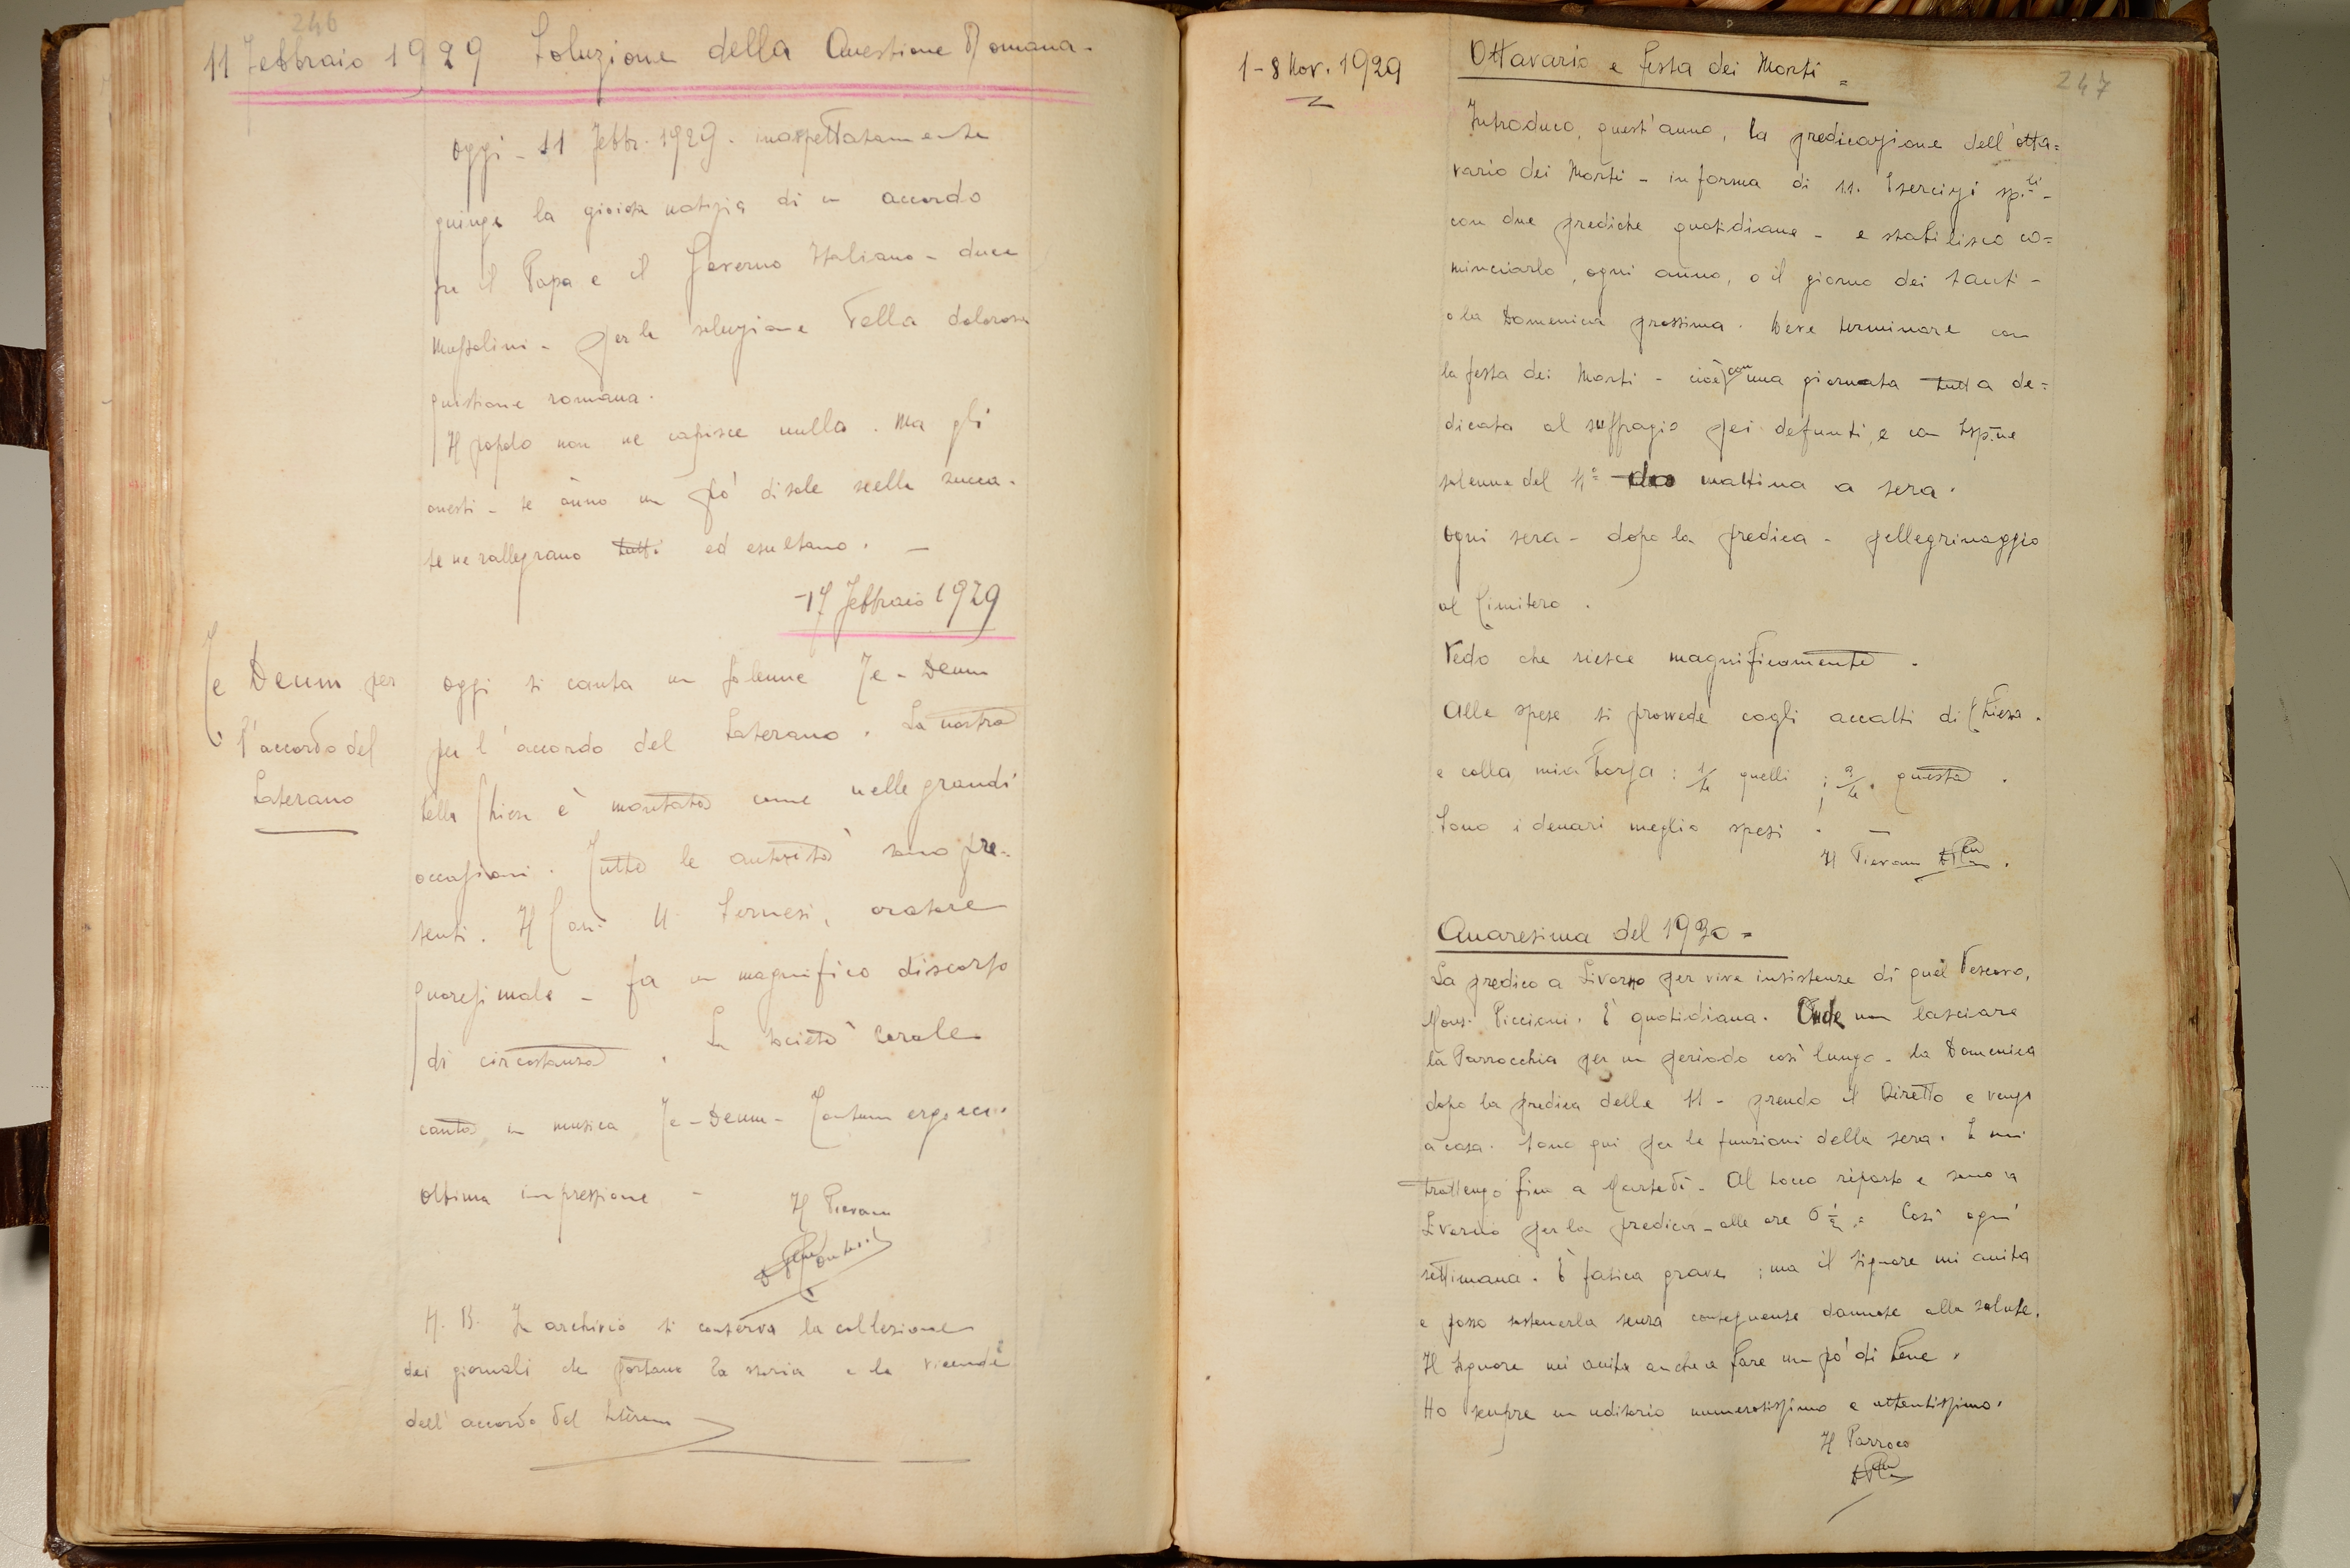 246
11 Febbraio 1929 Soluzione della Questione Romana -
Oggi - 11 Febbr. 1929. inaspettatamente
giunge la gioiosa notizia di un accordo
fra il Papa e il Governo Italiano - duce
Mussolini - per la soluzione della dolorosa
quistione romana.
Il popolo non ne capisce nulla. Ma gli
onesti - se ànno un pò di sale nella zucca -
se ne rallegrano tutti ed esultano. -
-17 Febbraio 1929
Te Deum per
l'accordo del
Laterano
Oggi si canta un solenne Te-Deum
per l'accordo del Laterano. La nostra
bella Chiesa è montata come nelle grandi
occasioni. Tutte le autorità sono pre-
senti. Il Can. oratore
quaresimale - fa un magnifico discorso
di circostanza. La società corale
canta in musica Te-Deum - Tantum ergo ecc.
Ottima impressione -
Il Pievano
N. B. In archivio si conserva la collezione
dei giornali che portano la storia e le vicende
dell'accordo del Laterano
247
1-8 Nov. 1929
Ottavario e festa dei Morti =
Introduco, quest'anno, la predicazione dell'otta=
vario dei Morti - in forma di SS. Esercizi sp.li -
con due prediche quotidiane - e stabilisco co=
minciarlo, ogni anno, o il giorno dei Santi -
o la Domenica prossima. Deve terminare con
la festa dei Morti - cioè con una giornata tutta de=
dicata al suffragio dei defunti, e con Esp.ne
solenne del mattina a sera.
Ogni sera - dopo la predica - pellegrinaggio
al Cimitero.
Vedo che riesce magnificamente.
Alle spese si provvede cogli accatti di Chiesa.
e colla mia borsa: quelli; questa.
Sono i denari meglio spesi. -
Il Pievano
Quaresima del 1930 =
La predico a Livorno per vive insistenze di quel Vescovo,
Mons. Piccioni. È quotidiana. Onde non lasciare
la Parrocchia per un periodo così lungo - la Domenica
dopo la predica delle 11 - prendo il Diretto e vengo
a casa. Sono qui per le funzioni della sera. E mi
trattengo fino a Martedì. Al tocco riparto e sono a
Livorno per la predica - alle ore 6 1/2 = Così ogni
settimana. È fatica grave; ma il Signore mi aiuta
e posso sostenerla senza conseguenze dannose alla salute.
Il Signore mi aiuta anche a fare un pò di bene.
Ho sempre un uditorio numerosissimo e attentissimo.
Il Parroco